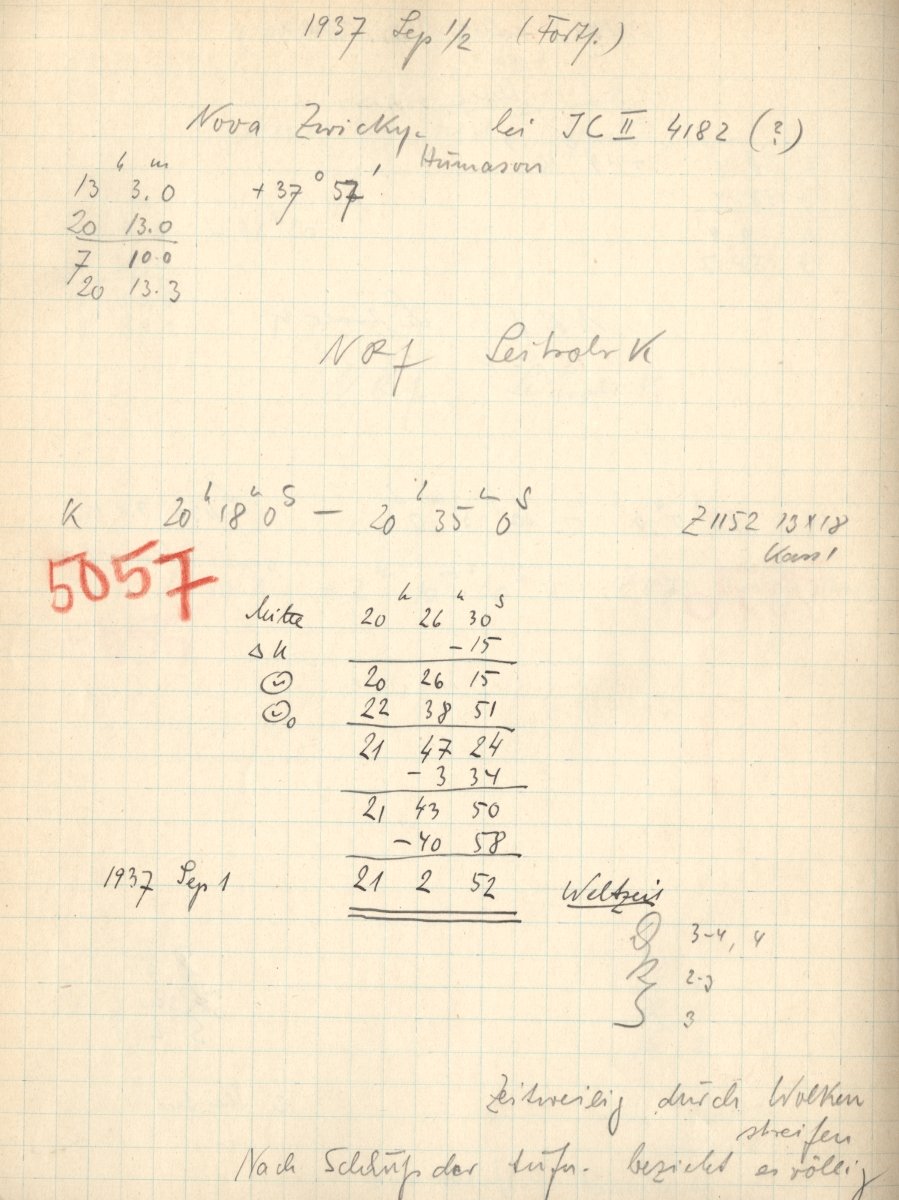 1937 Sep 1/2 (Fortf.)
Nova Zwicky- bei IC II 4182 (?)
Humason
h m
13 3.0 +37° 57'
20 13.0
7 10.0
20 13.3
Leitrohr K
K 20h 18m 0s — 20h 35m 0s Z 1152 13x18
5057
Mitte 20h 26m 30s
ΔK -15
20 26 15
22 38 51
21 47 24
-3 34
21 43 50
-40 58
1937 Sep 1 21 2 52 Weltzeit
3-4, 4
2-3
3
Zeitweilig durch Wolken
streifen
Nach Schluß der Aufn. bezieht es völlig